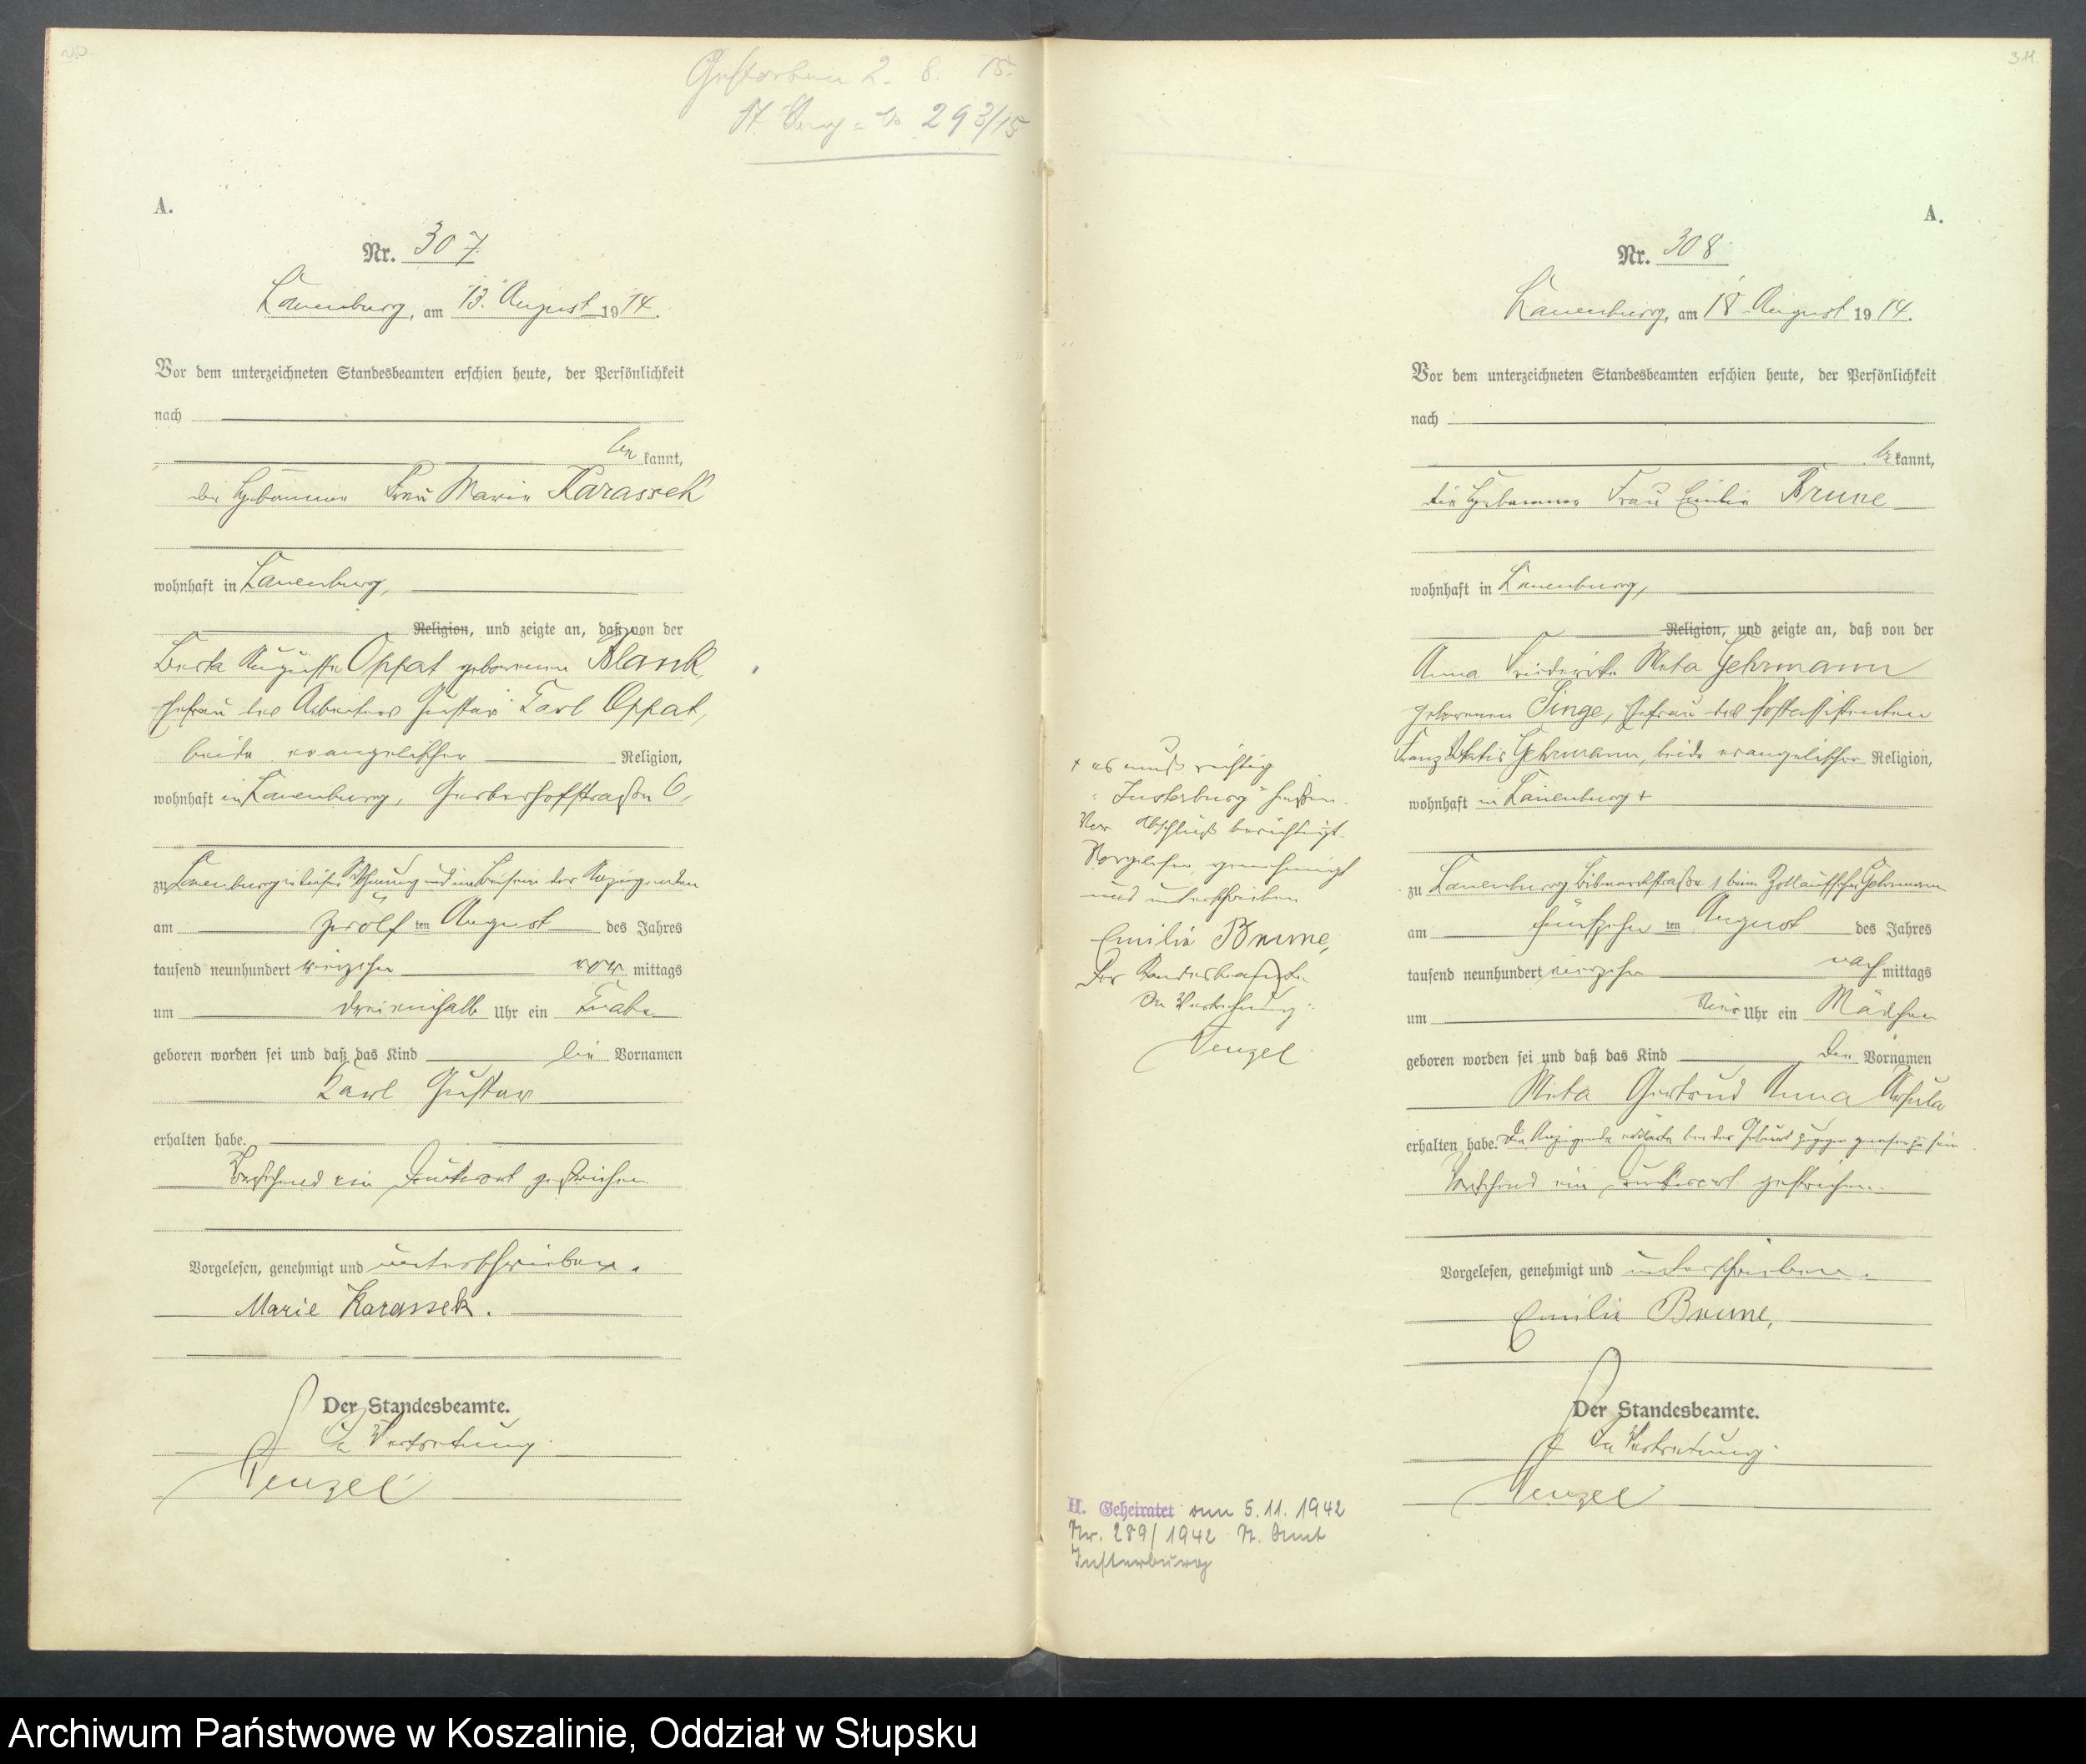 Gestorben 2. 8. 15.
293/15
A.
Nr. 307
Lauenburg, am 13. August 1914.
Vor dem unterzeichneten Standesbeamten erschien heute, der Persönlichkeit
nach
be kannt,
die Hebamme Frau Marie Karassek
wohnhaft in Lauenburg,
Religion, und zeigte an, daß von der
Berta Auguste Oppat geborenen Blank,
Ehefrau des Arbeiters Gustav Karl Oppat,
beide evangelischer Religion,
wohnhaft in Lauenburg, Gerberhofstraße 6,
zu Lauenburg in dieser Wohnung und im Beisein der Anzeigenden
am zwölf ten August des Jahres
tausend neunhundert vierzehn vor mittags
um dreieinhalb Uhr ein Knabe
geboren worden sei und daß das Kind die Vornamen
Karl Gustav
erhalten habe.
Vorstehend ein Druckwort gestrichen
Vorgelesen, genehmigt und unterschrieben.
Marie Karassek.
Der Standesbeamte.
In Vertretung.
Wenzel
34
A.
Nr. 308
Lauenburg, am 18 August 1914.
Vor dem unterzeichneten Standesbeamten erschien heute, der Persönlichkeit
nach
be kannt,
die Hebamme Frau Emilie Brune
wohnhaft in Lauenburg,
Religion, und zeigte an, daß von der
Anna Friederike Meta Gehrmann
geborenen Singe, Ehefrau des Postassistenten
Franz Gehrmann, beide evangelischer Religion,
wohnhaft in Lauenburg +
zu Lauenburg Bismarckstraße 1 beim Zollaufseher Gehrmann
am fünfzehn ten August des Jahres
tausend neunhundert vierzehn nach mittags
um Uhr ein Mädchen
geboren worden sei und daß das Kind die Vornamen
Meta Gertrud Anna Ursula
erhalten habe. Die Anzeigende erklärte bei der Geburt zugegen gewesen zu sein
Vorstehend ein Druckwort gestrichen.
Vorgelesen, genehmigt und unterschrieben.
Emilie Brune,
Der Standesbeamte.
In Vertretung.
Wenzel
+ es muß richtig
"Insterburg" heißen.
Vor Abschluß berichtigt.
Vorgelesen, genehmigt
und unterschrieben
Emilie Brune,
Der Standesbeamte.
In Vertretung:
Wenzel
II. Geheiratet am 5.11.1942
Nr. 289/1942 St. Amt
Insterburg
Archiwum Państwowe w Koszalinie, Oddział w Słupsku